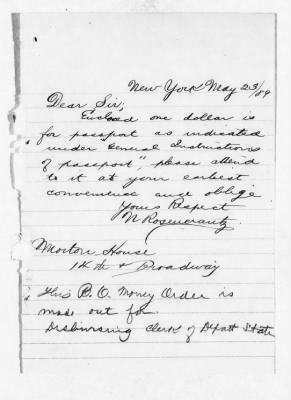 New York May 23/89
Dear Sir;
Enclosed one dollar is
for passport as indicated
under "General Instructions
of passport" please attend
to it at your earliest
convenience and oblige
Yours Respect
N Rosencrantz
Morton House
14th & Broadway
This P.O. Money Order is
made out for
Disbursing Clerk of Depart State